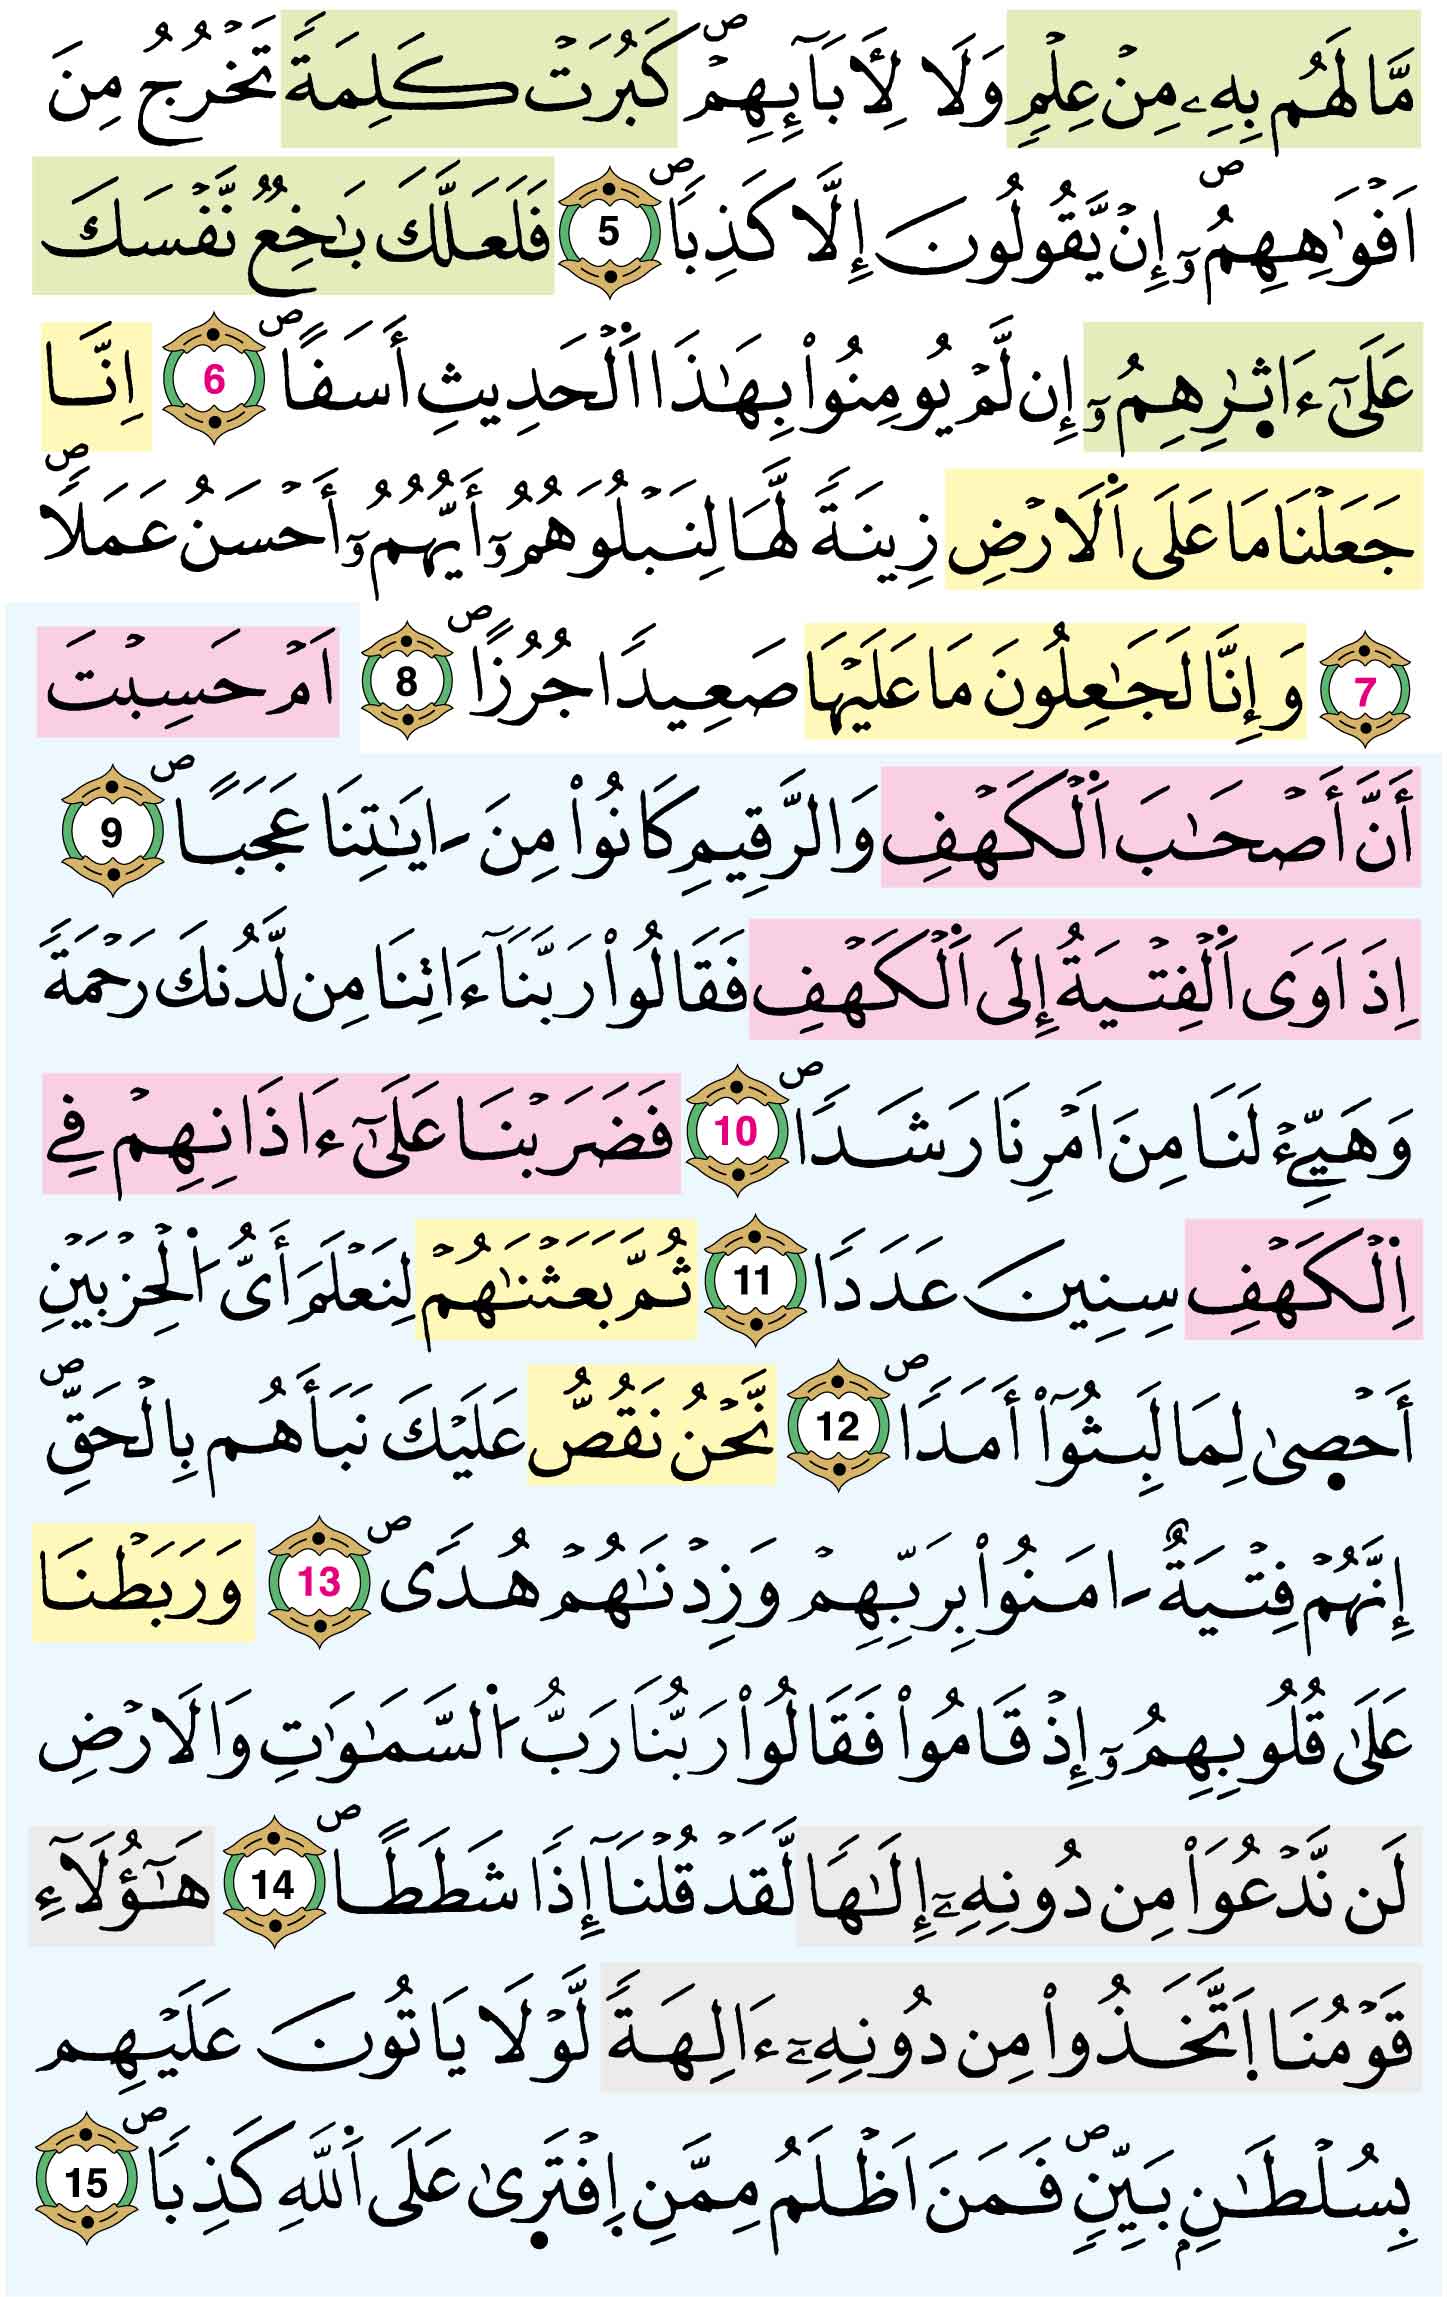 مَّا لَهُم بِهِۦ مِنْ عِلْمٖ وَلَا لِأٓبَآئِهِمْۖ كَبُرَتْ كَلِمَةٗ تَخْرُجُ مِنَ
اَفْوَٰهِهِمُۥٓۖ إِنْ يَّقُولُونَ إِلَّا كَذِباٗۖ 5 فَلَعَلَّكَ بَٰخِعٞ نَّفْسَكَ
عَلَىٰٓ ءَاثٰ۪رِهِمُۥٓ إِن لَّمْ يُومِنُواْ بِهَٰذَا اَ۬لْحَدِيثِ أَسَفاًۖ 6 اِنَّا
جَعَلْنَا مَا عَلَى اَ۬لَارْضِ زِينَةٗ لَّهَا لِنَبْلُوَهُمُۥٓ أَيُّهُمُۥٓ أَحْسَنُ عَمَلاٗۖ
7 وَإِنَّا لَجَٰعِلُونَ مَا عَلَيْهَا صَعِيداٗ جُرُزاًۖ 8 اَمْ حَسِبْتَ
أَنَّ أَصْحَٰبَ اَ۬لْكَهْفِ وَالرَّقِيمِ كَانُواْ مِنَ ـَايَٰتِنَا عَجَباًۖ 9
اِذَ اَوَى اَ۬لْفِتْيَةُ إِلَى اَ۬لْكَهْفِ فَقَالُواْ رَبَّنَآ ءَاتِنَا مِن لَّدُنكَ رَحْمَةٗ
وَهَيِّۓْ لَنَا مِنَ اَمْرِنَا رَشَداٗۖ 10 فَضَرَبْنَا عَلَىٰٓ ءَاذَانِهِمْ فِے
اِ۬لْكَهْفِ سِنِينَ عَدَداٗ 11 ثُمَّ بَعَثْنَٰهُمْ لِنَعْلَمَ أَيُّ اُ۬لْحِزْبَيْنِ
أَحْص۪ىٰ لِمَا لَبِثُوٓاْ أَمَداٗۖ 12 نَّحْنُ نَقُصُّ عَلَيْكَ نَبَأَهُم بِالْحَقِّۖ
إِنَّهُمْ فِتْيَةٌ ـَامَنُواْ بِرَبِّهِمْ وَزِدْنَٰهُمْ هُدىٗۖ 13 وَرَبَطْنَا
عَلَىٰ قُلُوبِهِمُۥٓ إِذْ قَامُواْ فَقَالُواْ رَبُّنَا رَبُّ اُ۬لسَّمَٰوَٰتِ وَالَارْضِ
لَن نَّدْعُوَاْ مِن دُونِهِۦٓ إِلَٰهاٗ لَّقَدْ قُلْنَآ إِذاٗ شَطَطاًۖ 14 هَٰٓؤُلَآءِ
قَوْمُنَا اَ۪تَّخَذُواْ مِن دُونِهِۦٓ ءَالِهَةٗ لَّوْلَا يَاتُونَ عَلَيْهِم
بِسُلْطَٰنِۢ بَيِّنٖۖ فَمَنَ اَظْلَمُ مِمَّنِ اِ۪فْتَر۪ىٰ عَلَى اَ۬للَّهِ كَذِباٗۖ 15